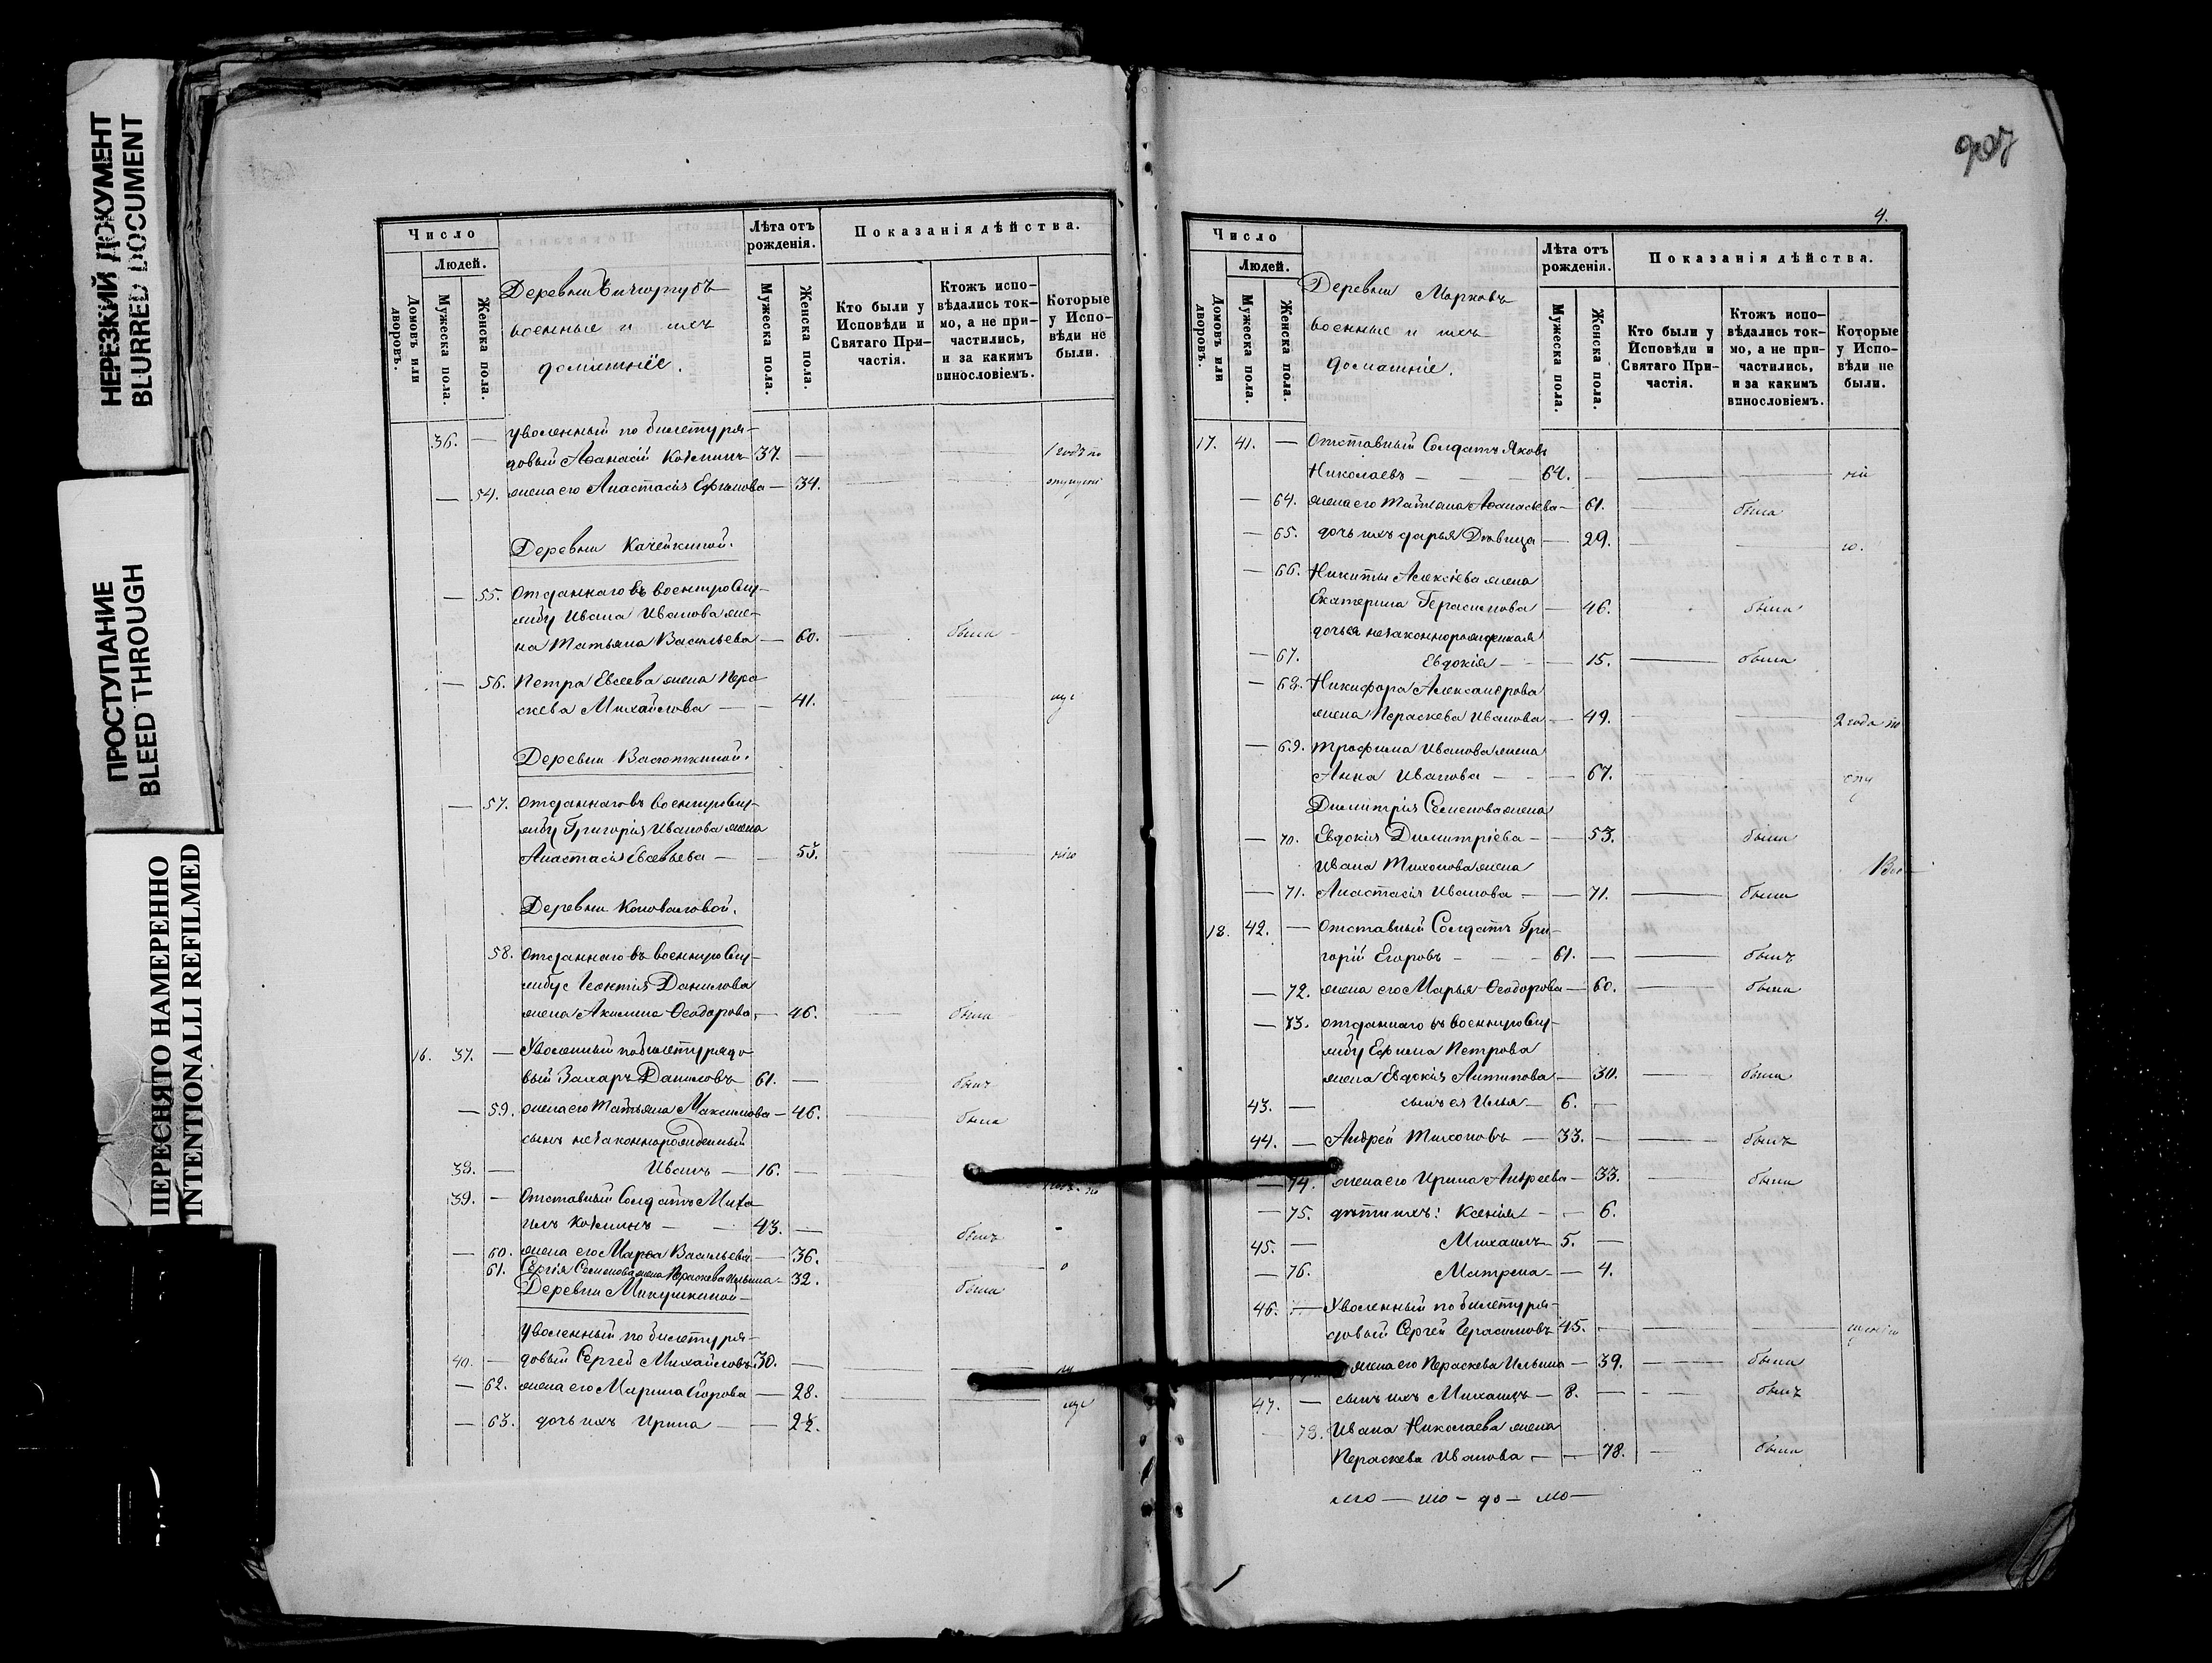 НЕРЕЗКИЙ ДОКУМЕНТ
BLURRED DOCUMENT
ПРОСТУПАНИЕ
BLEED THROUGH
ПЕРЕСНЯТО НАМЕРЕННО
INTENTIONALLI REFILMED
Число
Людей.
Домовъ или дворовъ.
Мужеска пола.
Женска пола.
Деревни
военные и ихъ
домашніе.
Лѣта отъ рожденія.
Мужеска пола.
Женска пола.
Показанія дѣйства.
Кто были у Исповѣди и Святаго Причастія.
Ктожъ исповѣдались токмо, а не причастились, и за какимъ винословіемъ.
Которые у Исповѣди не были.
36. — уволенный по билету ря-
довый Аѳанасій Козминъ 37. — 1 годъ по
— 54. жена его Анастасія Ефимова — 34. — опущені
Деревни Качейкиной.
— 55. Отданнаго въ военную слу-
жбу Ивана Иванова же-
на Татьяна Васильева — 60. — была
— 56. Петра Евсеева жена Пера-
скева Михайлова — — 41.
Деревни Васюткиной.
— 57. Отданнаго въ военную слу-
жбу Григорія Иванова жена
Анастасія — — 55. — нію
Деревни Коноваловой.
58. Отданнаго въ военную слу-
жбу Леонтія Данилова
жена Акилина Ѳеодорова — 46. — была
16. 37. — Уволенный по билету рядо-
вый Захаръ Даниловъ 61. — былъ
— 59. жена его Татьяна Максимова — 46. — была
сынъ незаконнорожденный
38. — Иванъ — 16. —
39. — Отставный Солдатъ Миха-
илъ Козминъ — — 43. — былъ
— 60. жена его Марѳа Васильева — 36.
61. Сергія Семенова жена Пераскева Ильина — 32. была
Деревни Микушкиной —
уволенный по билету ря-
40. — довый Сергей Михайловъ 30. —
— 62. жена его Марина Егорова — 28. —
— 63. дочь ихъ Ирина — — 2½.
907
4.
Число
Людей.
Домовъ или дворовъ.
Мужеска пола.
Женска пола.
Деревни Марковъ
военные и ихъ
домашніе.
Лѣта отъ рожденія.
Мужеска пола.
Женска пола.
Показанія дѣйства.
Кто были у Исповѣди и Святаго Причастія.
Ктожъ исповѣдались токмо, а не причастились, и за какимъ винословіемъ.
Которые у Исповѣди не были.
17. 41. — Отставный Солдатъ Яковъ
Николаевъ — — 64. —
— 64. жена его Татьяна Аѳанасьева — 61. — была
— 65. дочь ихъ Дарья Дѣвица — 29. — ю.
— 66. Никиты Алексѣева жена
Екатерина Герасимова — 46. была
дочь ея незаконнорожденная
— 67. Евдокія — — 15. — была
— 68. Никифора Александрова
жена Пераскева Иванова — 49. — 2 года по
— 69. Трофима Иванова жена
Анна Иванова — — 67. — опу
Димитрія Семенова жена
— 70. Евдокія Димитріева — — 53. была
Ивана Тихонова жена
— 71. Анастасія Иванова — — 71. — была
18. 42. — Отставный Солдатъ Гри-
горій Егоровъ — — 61. — былъ
— 72. жена его Марья Ѳеодорова — 60. — была
— 73. отданнаго въ военную слу-
жбу Ефима Петрова
жена Евдокія Антипова — 30. — была
43. — сынъ ея Илья — 6. —
44. — Андрей Тихоновъ — 33. — былъ
— 74. жена его Ирина Андреева — 33. — была
— 75. дѣти ихъ: Ксенія — — 6.
45. — Михаилъ — 5. —
— 76. Матрена — — 4.
46. — Уволенный по билету ря-
довый Сергей Герасимовъ 45. —
жена его Пераскева Ильина — 39. — была
47. — сынъ ихъ Михаилъ — 8. — былъ
78. Ивана Николаева жена
Пераскева Иванова — — 78. — была